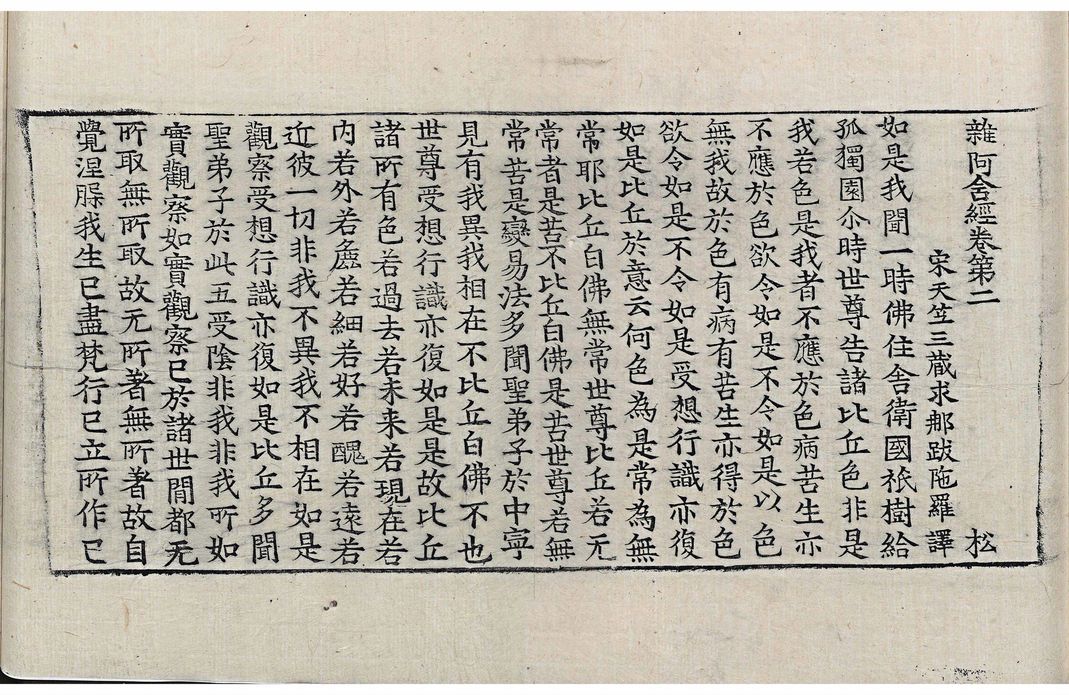 雜阿含經卷第二　松
宋天竺三藏求郍跋陁羅譯
如是我聞一時佛住舍衛國祇樹給
孤獨園尒時世尊告諸比丘色非是
我若色是我者不應於色病苦生亦
不應於色欲令如是不令如是以色
無我故於色有病有苦生亦得於色
欲令如是不令如是受想行識亦復
如是比丘於意云何色為是常為無
常耶比丘白佛無常世尊比丘若无
常者是苦不比丘白佛是苦世尊若無
常苦是變易法多聞聖弟子於中寧
見有我異我相在不比丘白佛不也
世尊受想行識亦復如是是故比丘
諸所有色若過去若未来若現在若
内若外若麁若細若好若醜若遠若
近彼一切非我不異我不相在如是
觀察受想行識亦復如是比丘多聞
聖弟子於此五受陰非我非我所如
實觀察如實觀察已於諸世閒都无
所取無所取故无所著無所著故自
覺涅槃我生已盡梵行已立所作已